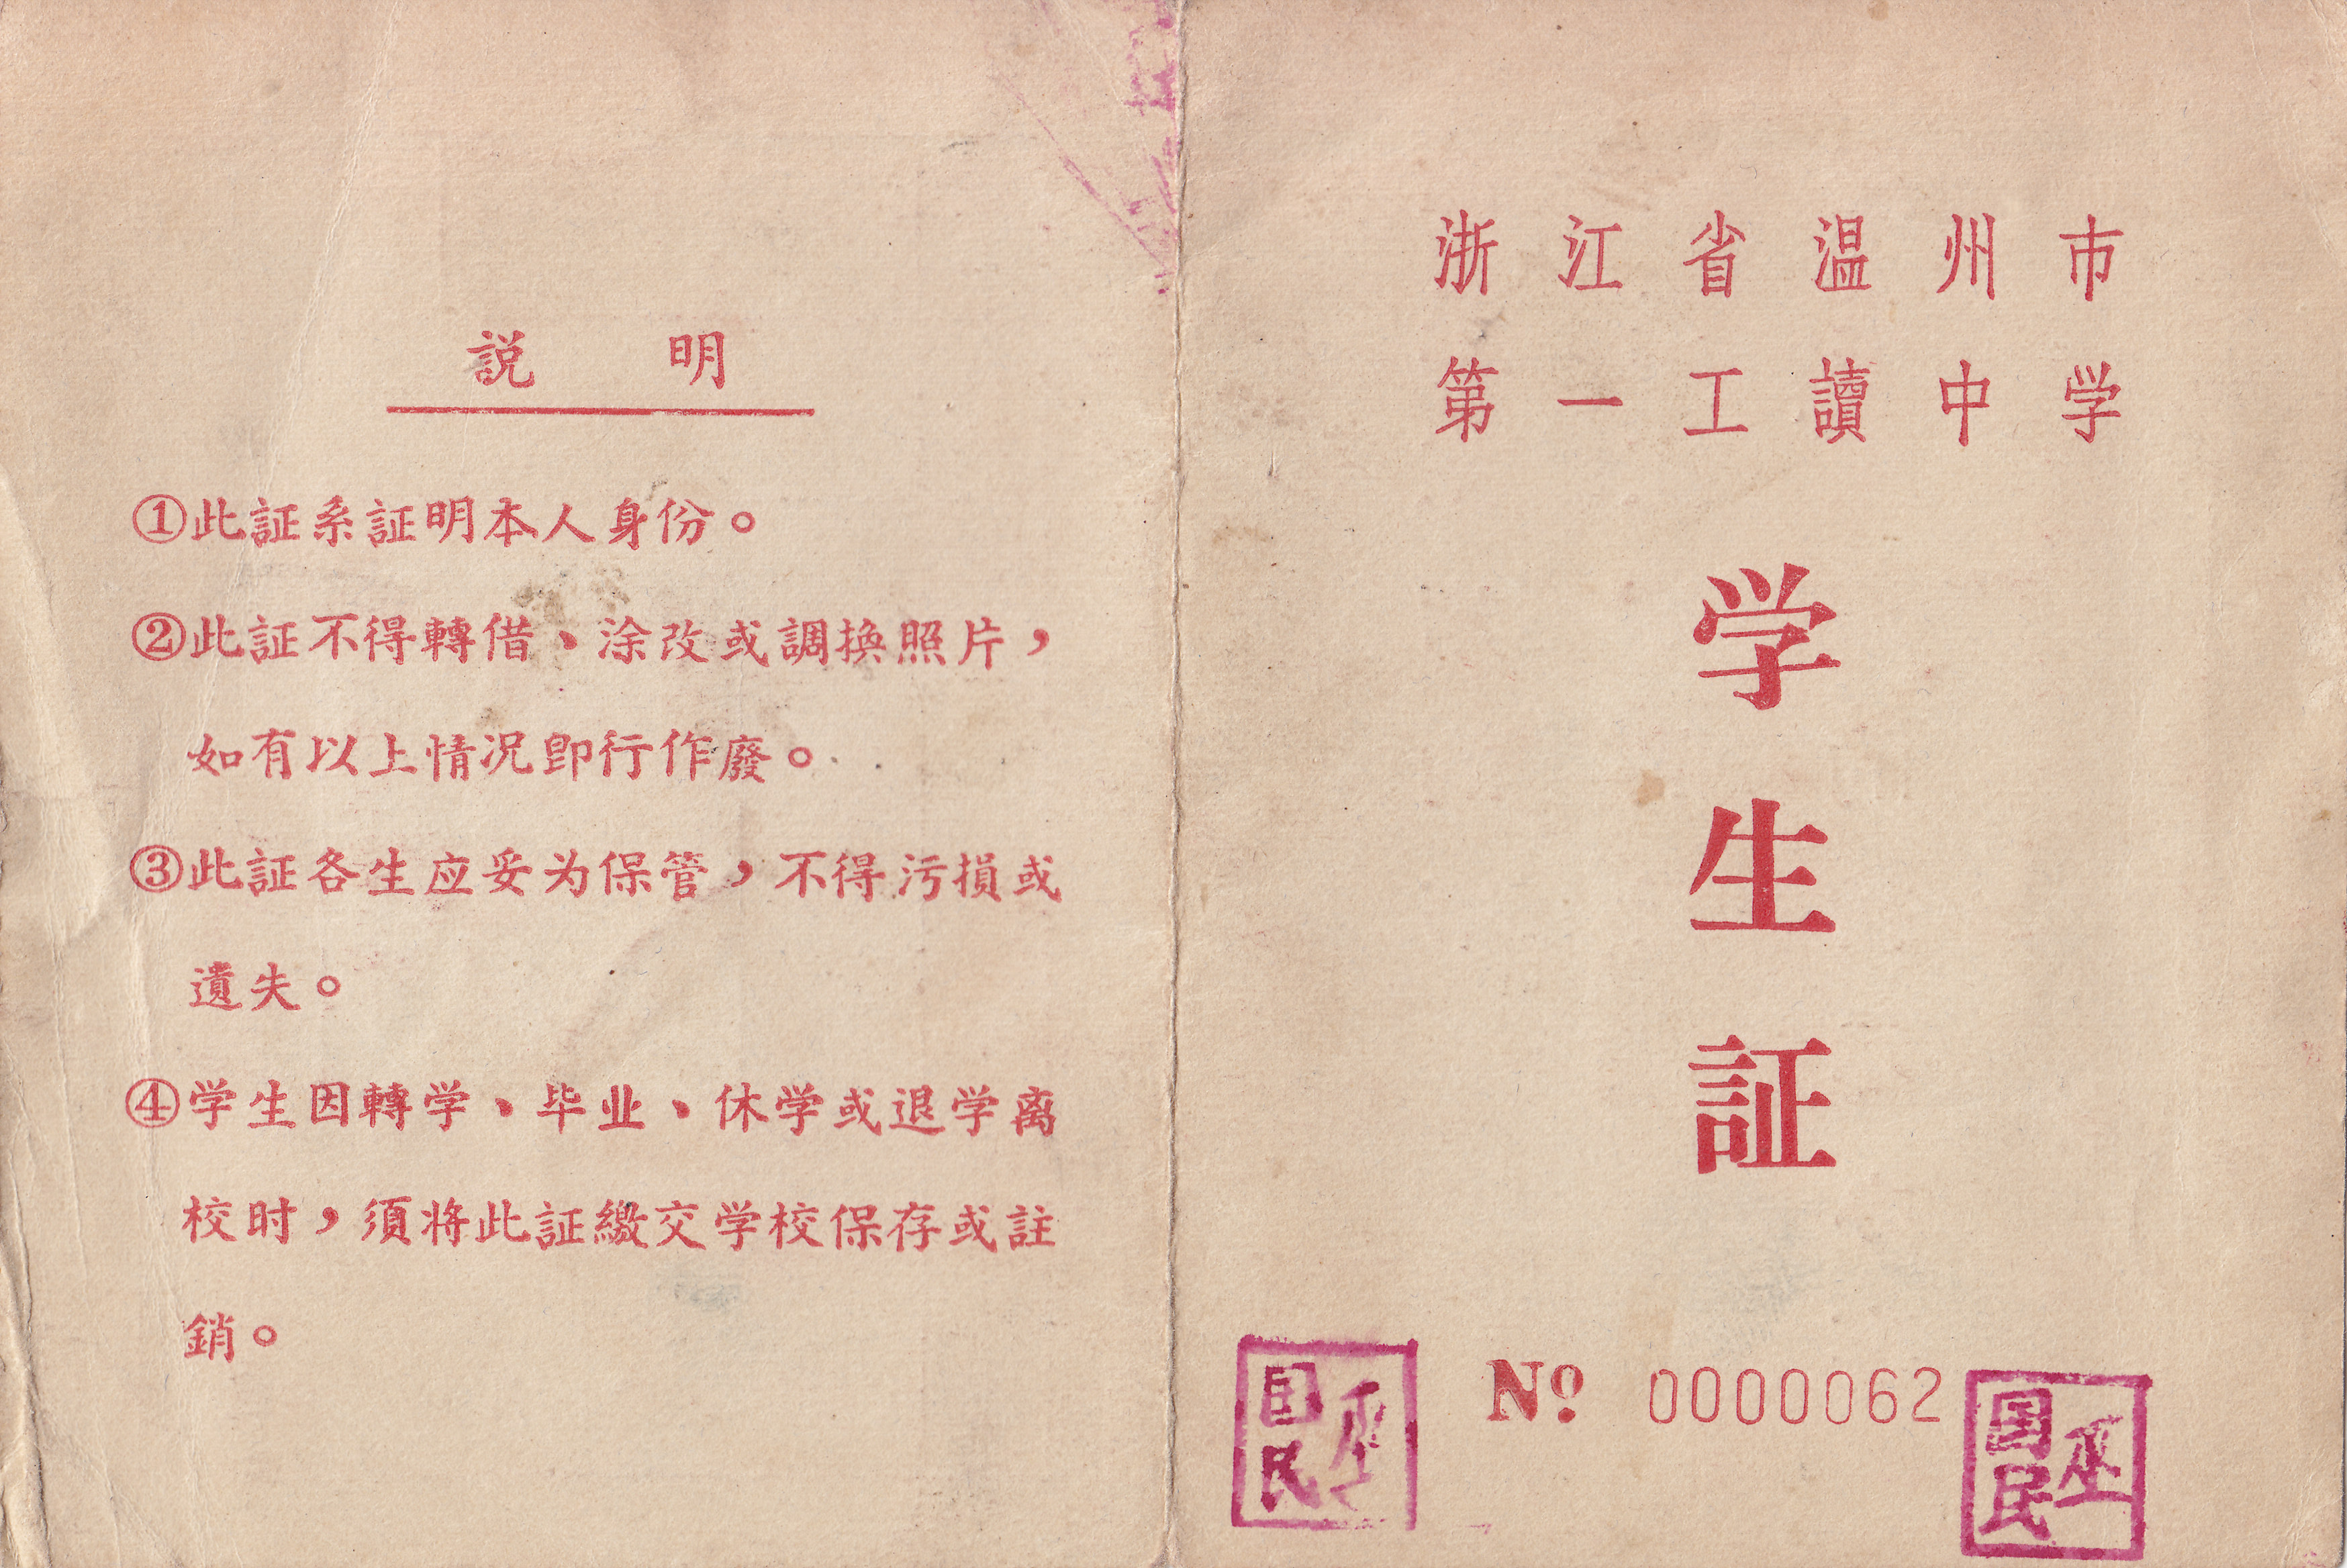 浙江省温州市
第一工讀中学
学
生
証
№ 0000062
国民
国民
説明
①此証系証明本人身份。
②此証不得轉借、涂改或調換照片，
如有以上情况卽行作廢。
③此証各生应妥为保管，不得污損或
遺失。
④学生因轉学、毕业、休学或退学离
校时，須将此証繳交学校保存或註
銷。